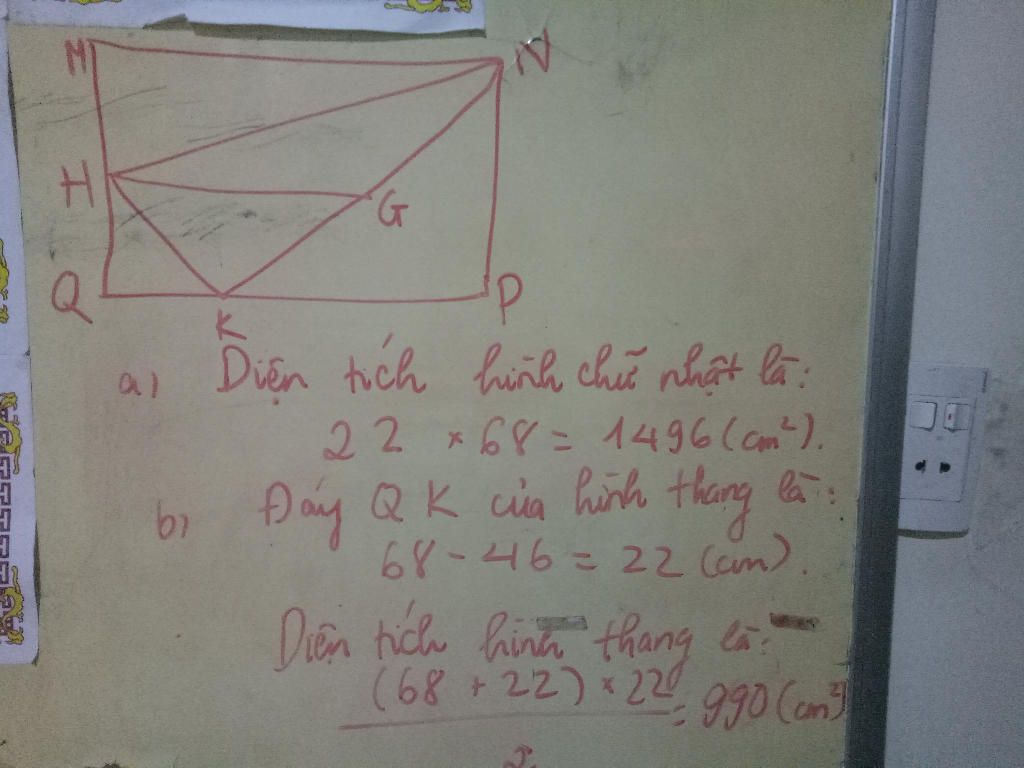 M N
H G
Q K P
a) Diện tích hình chữ nhật là:
22 × 68 = 1496 (cm²).
b) Đáy QK của hình thang là:
68 - 46 = 22 (cm).
Diện tích hình thang là:
(68 + 22) × 22 = 990 (cm²)
2